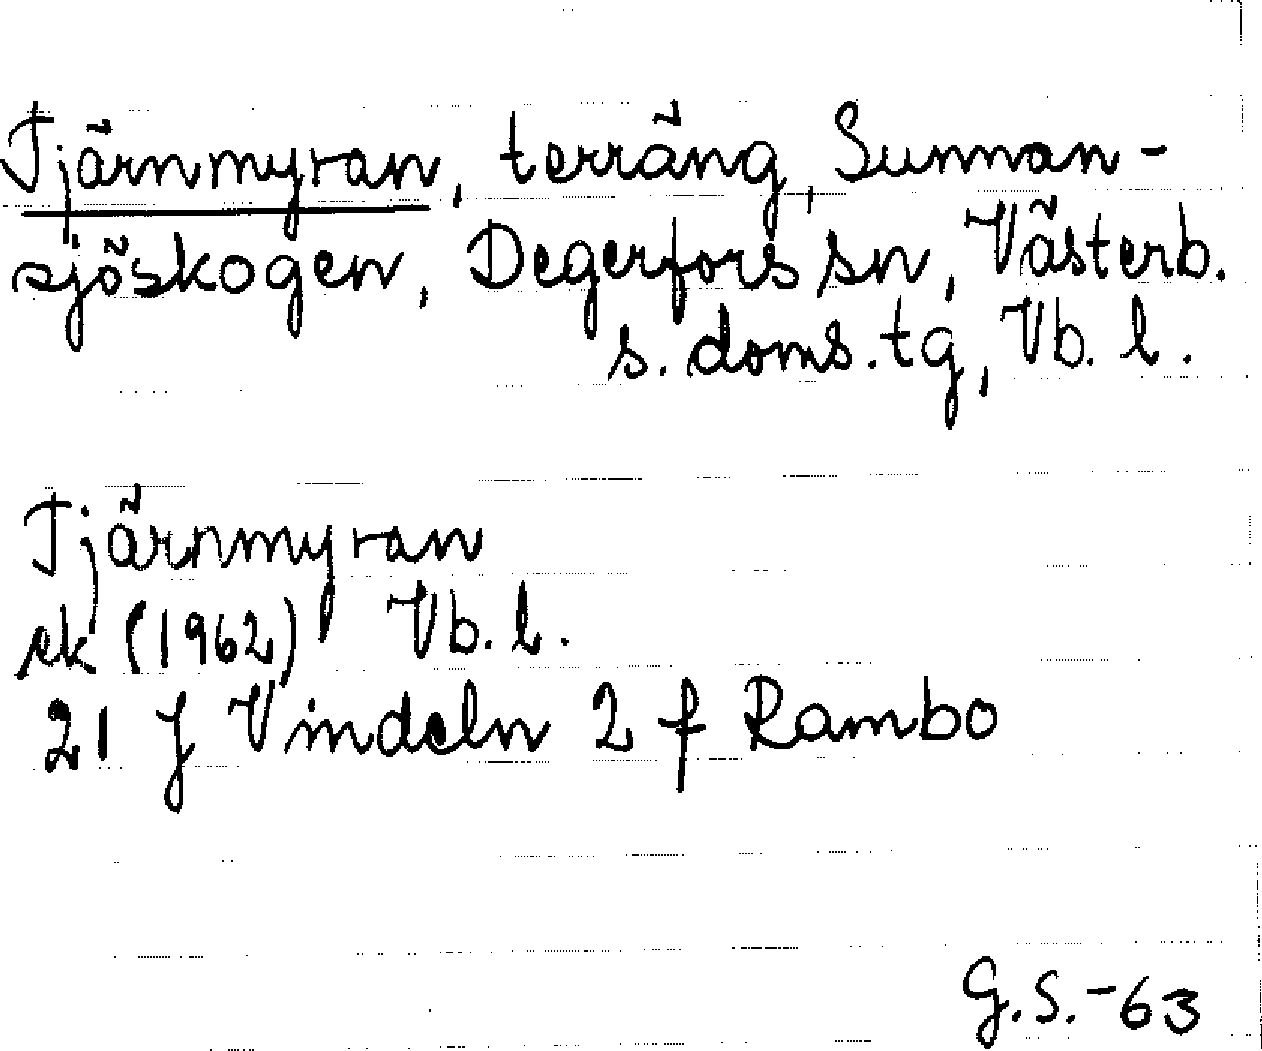 Tjärnmyran, terräng, Sunnan-
sjöskogen, Degerfors sn, Västerb.
s. doms. tg, Vb. l.
Tjärnmyran
ek (1962) Vb. l.
21 J Vindeln 2 f Rambo
G.S.-63